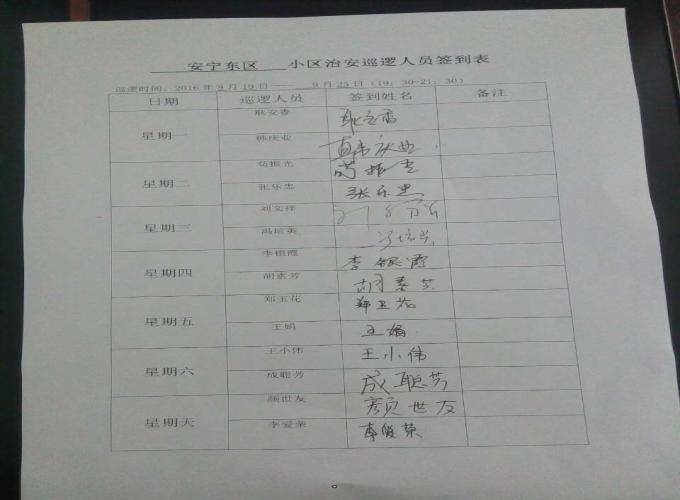 安宁东区 小区治安巡逻人员签到表
巡逻时间：2016年9月19日—— 9月25日（19：30-21：30）
日期 巡逻人员 签到姓名 备注
星期一 耿安香 耿安香
韩庆业 韩庆业
星期二 苟振光 苟振光
张乐忠 张乐忠
星期三 刘文祥
冯培英
星期四 李银霞 李银霞
胡素芳 胡素芳
星期五 郑玉花 郑玉花
王娟 王娟
星期六 王小伟 王小伟
成聪芳 成聪芳
星期天 颜世友 颜世友
李爱荣 李爱荣